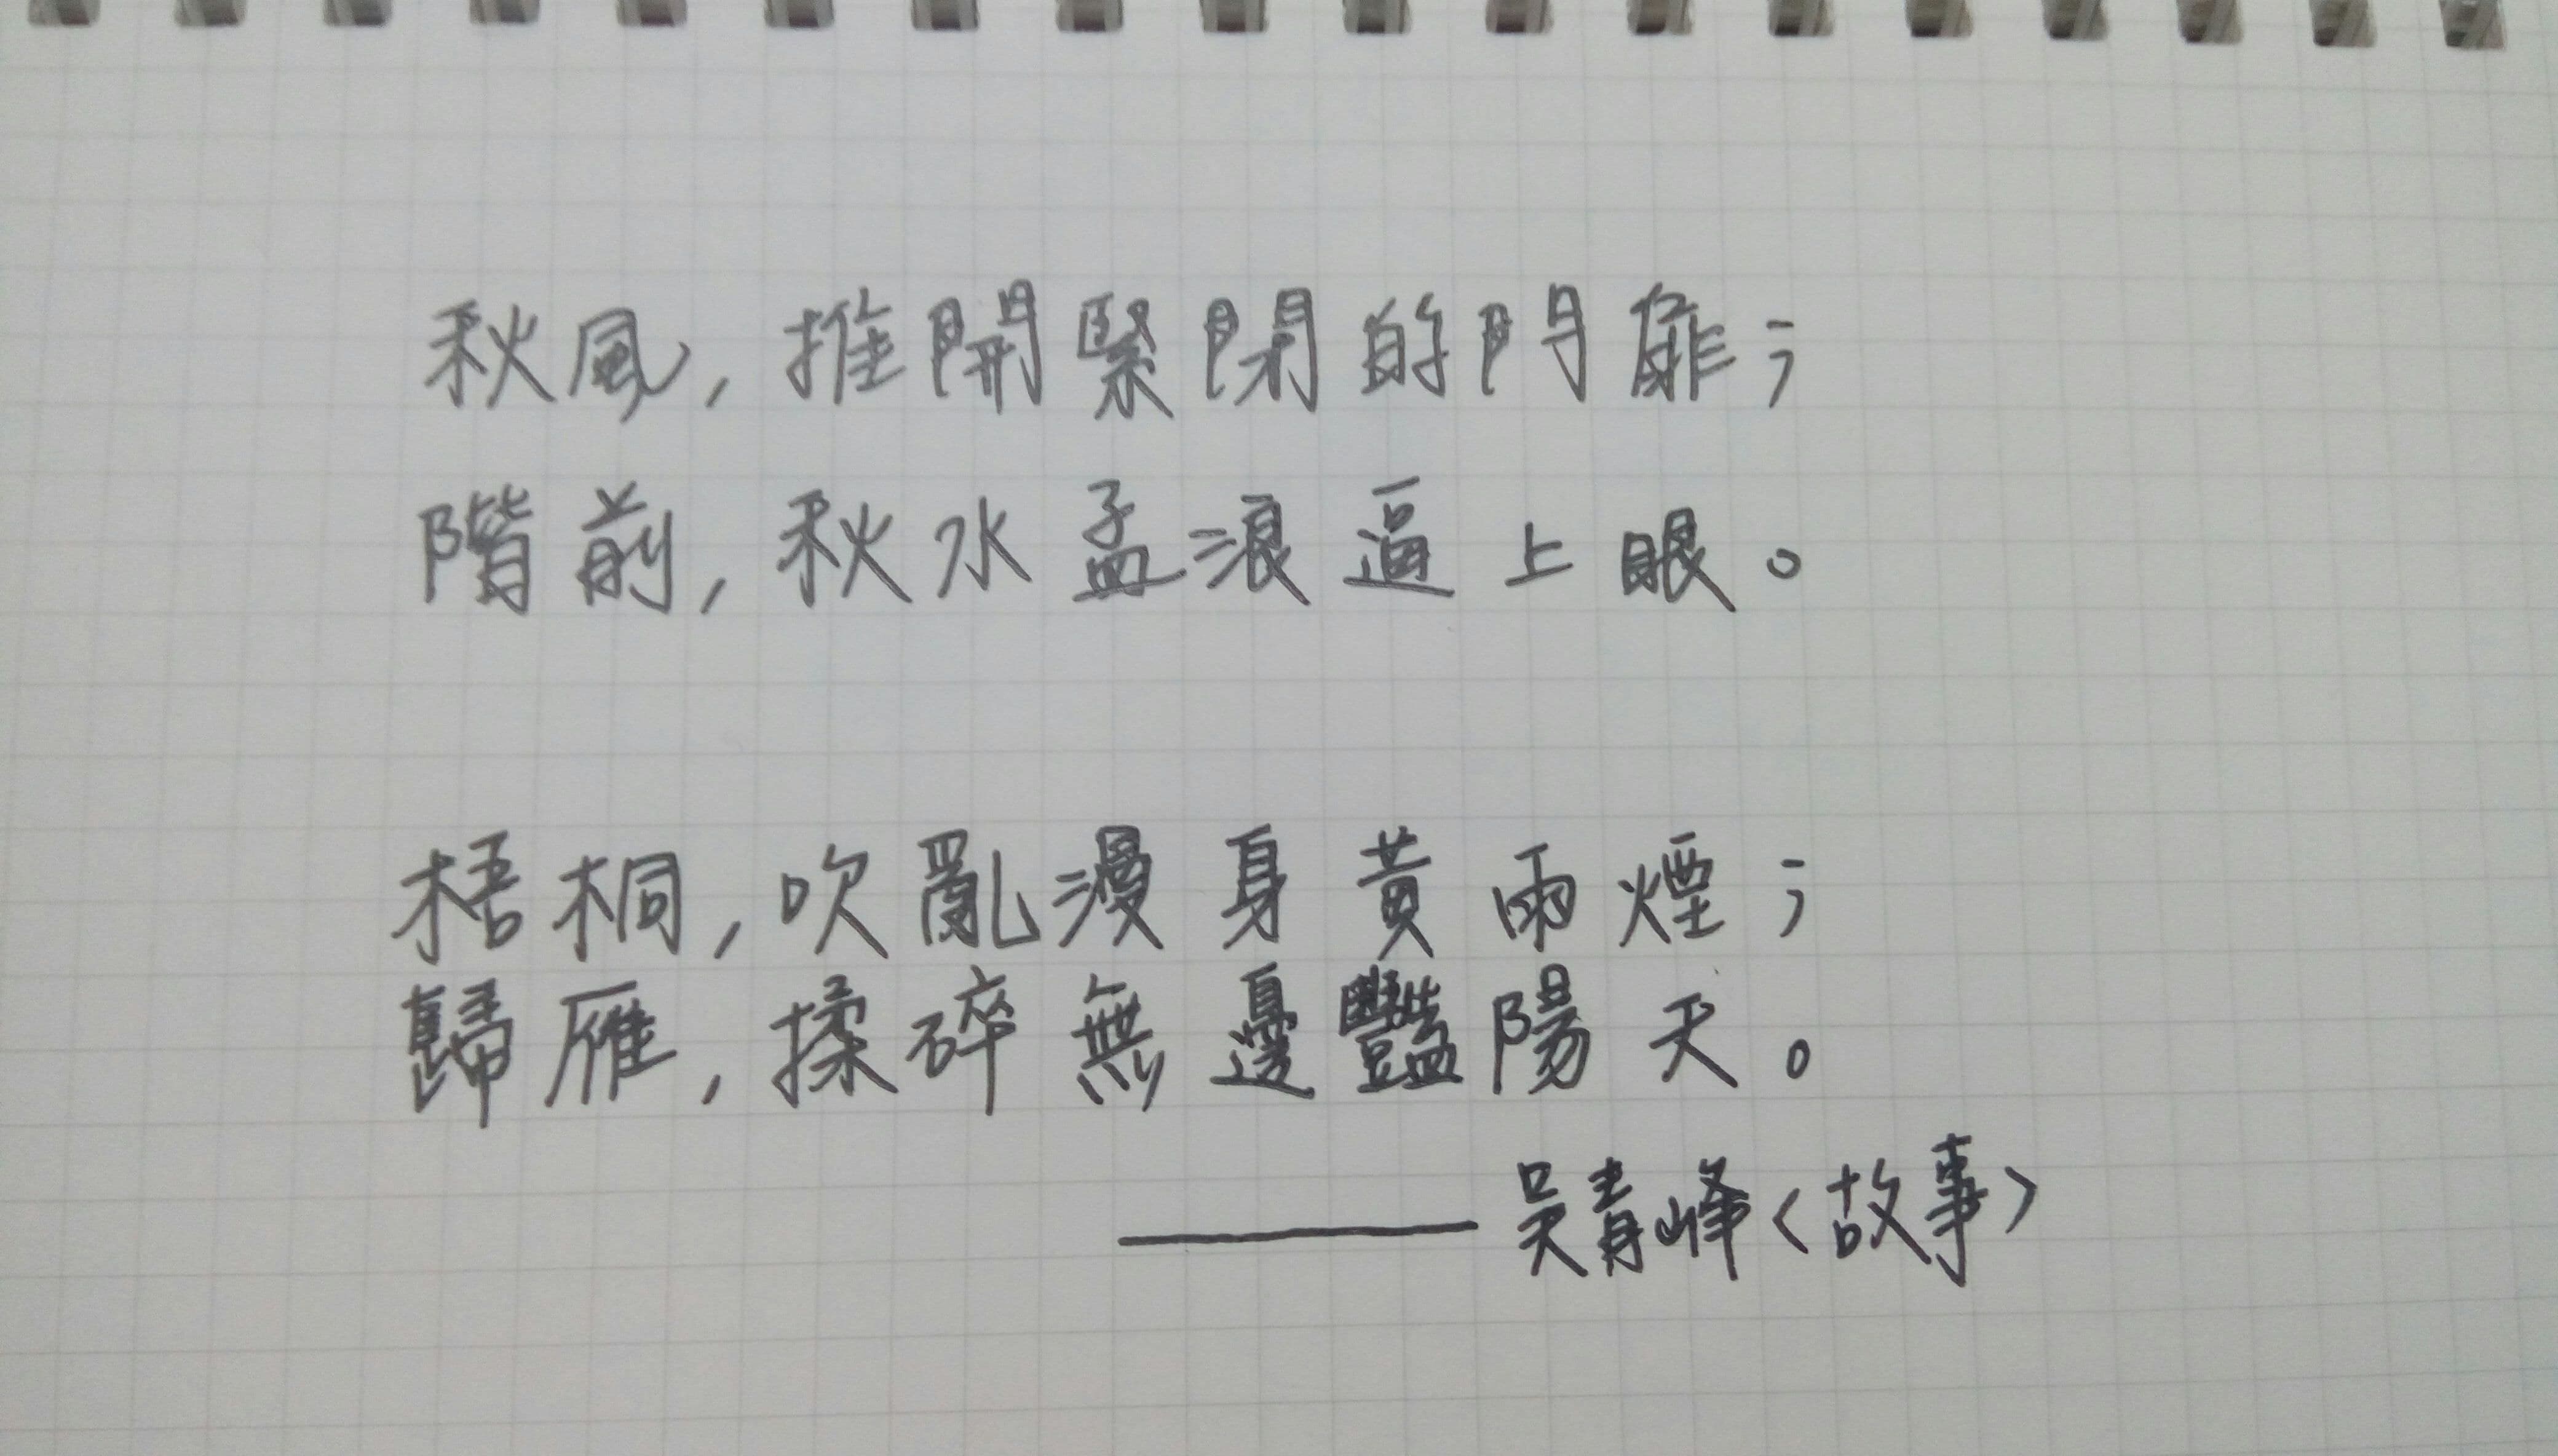 秋風，推開緊閉的門扉；
階前，秋水孟浪逼上眼。
梧桐，吹亂漫身黃雨煙；
歸雁，揉碎無邊豔陽天。
——吳青峰〈故事〉